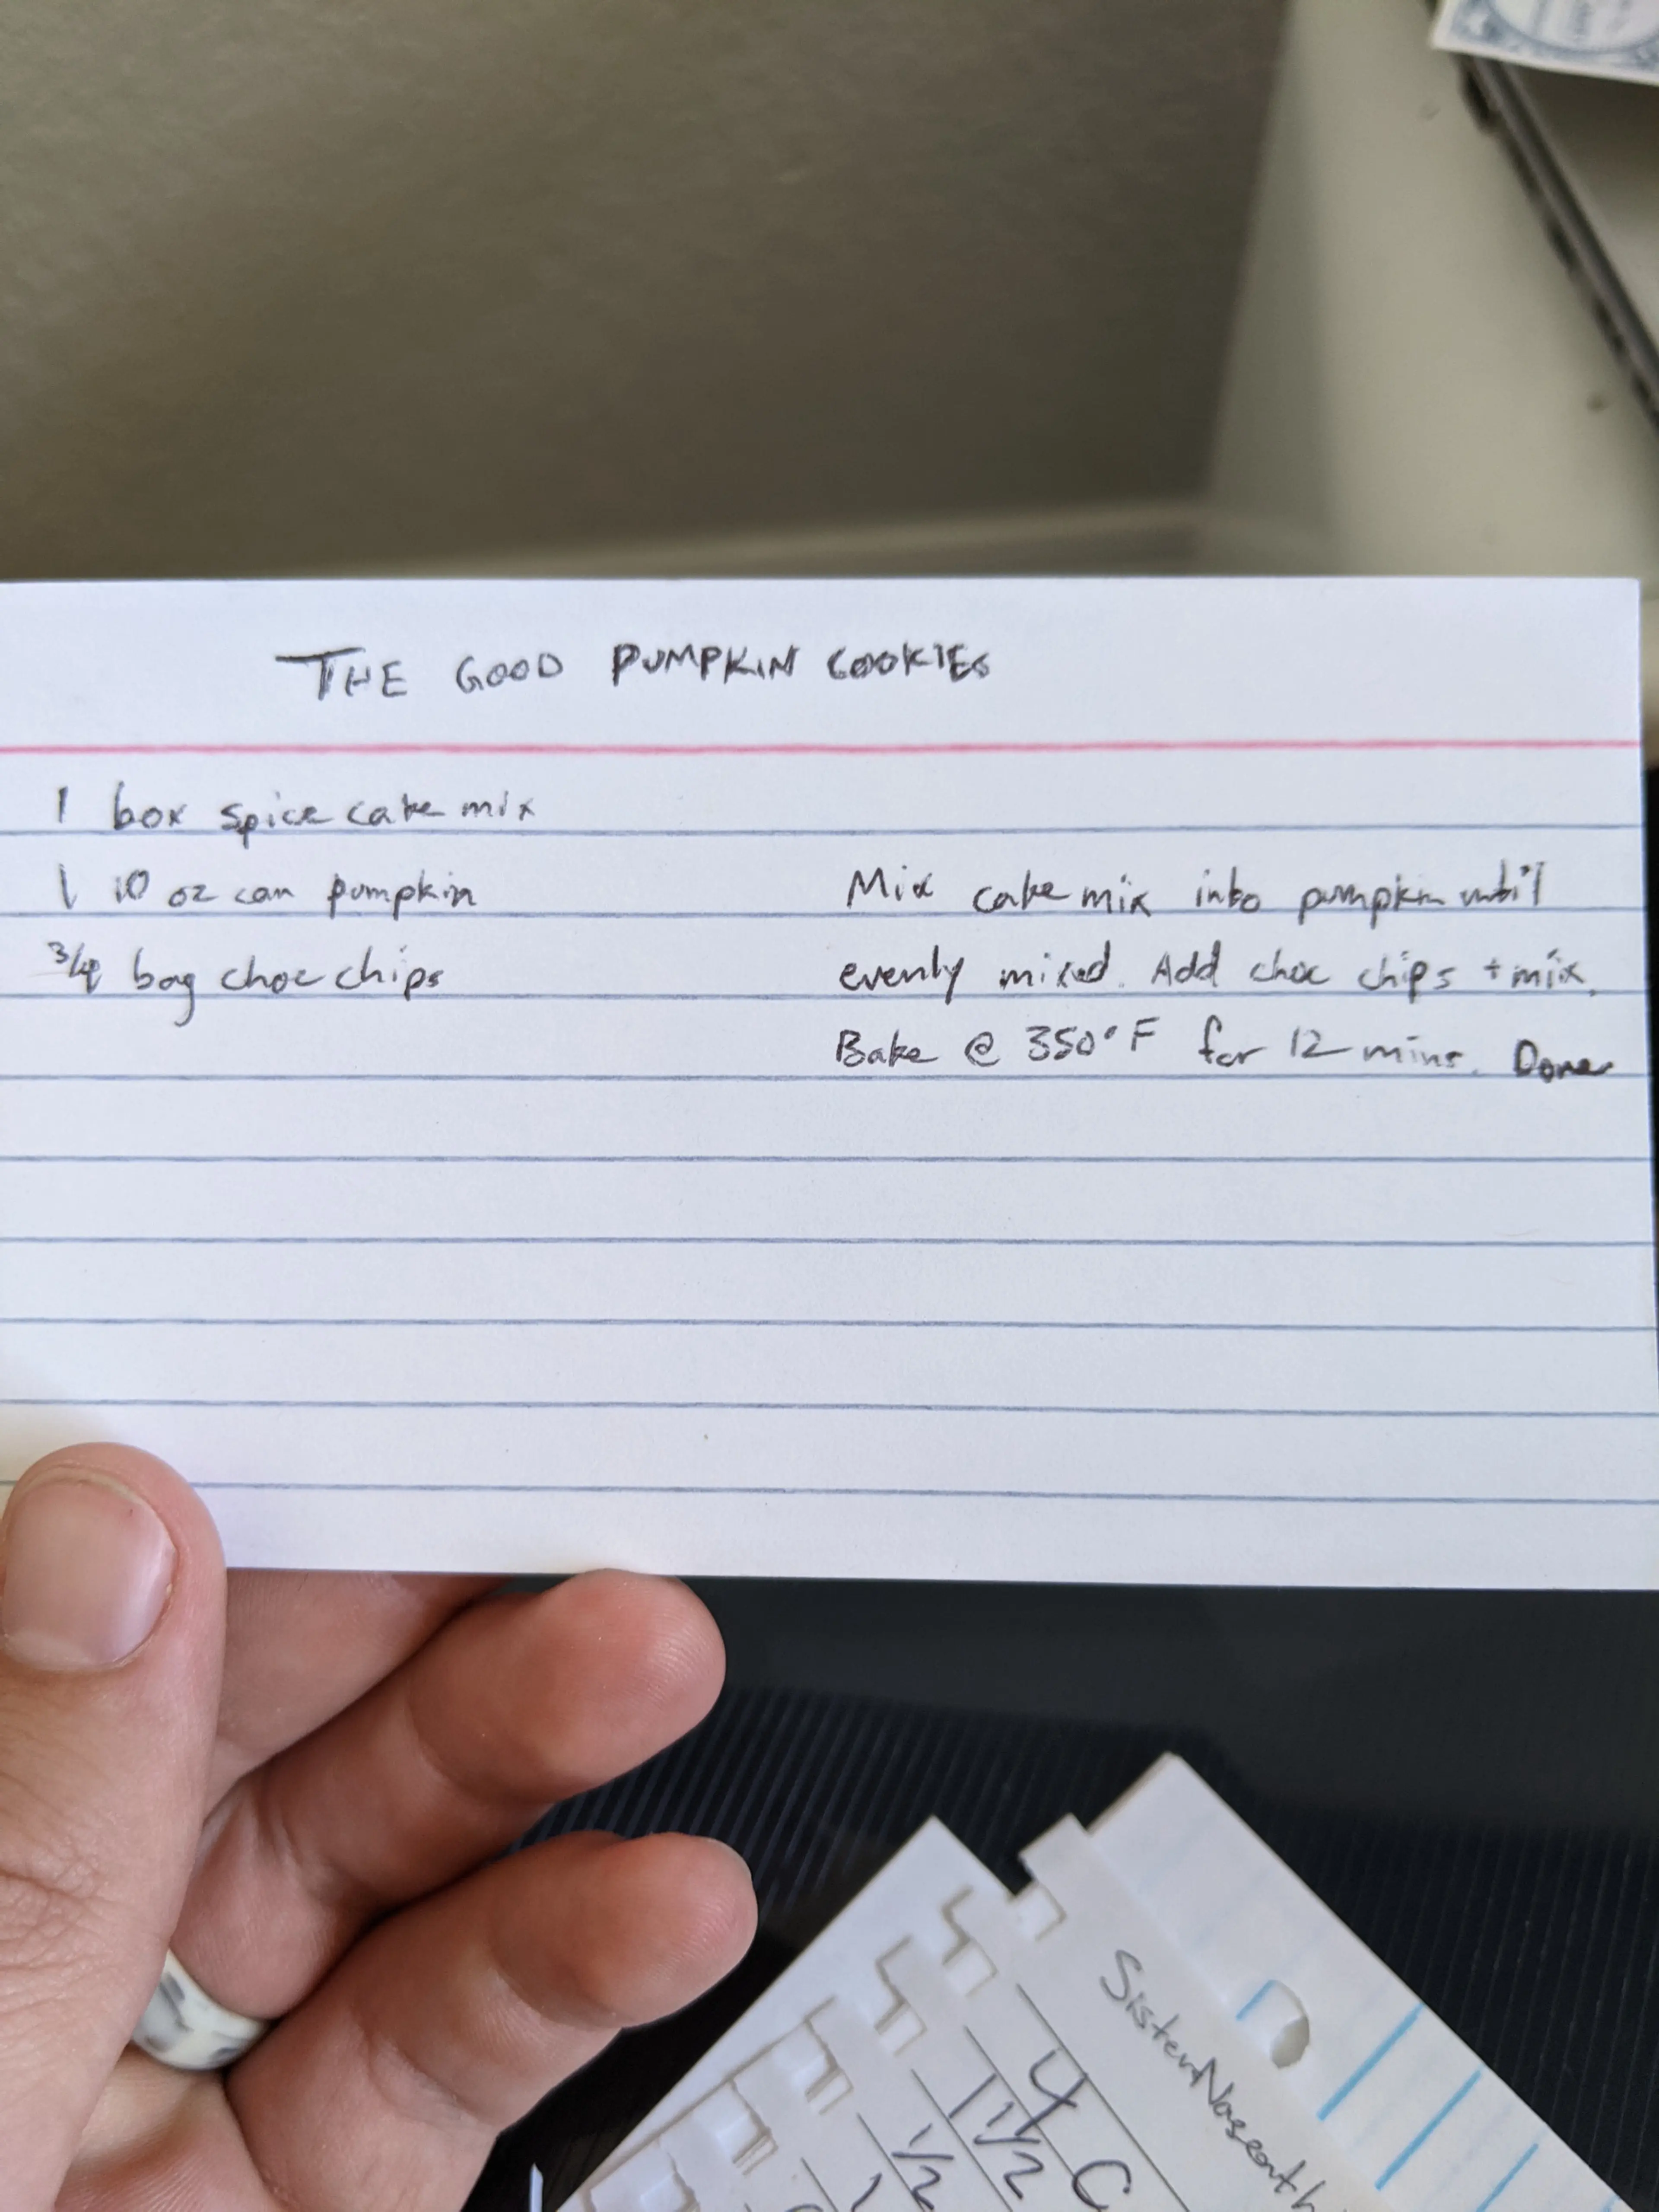 THE GOOD PUMPKIN COOKIES
1 box spice cake mix
1 10 oz can pumpkin
3/4 bag choc chips
Mix cake mix into pumpkin until
evenly mixed. Add choc chips + mix.
Bake @ 350°F for 12 mins. Done
Sister
4 C
1 1/2
1/2